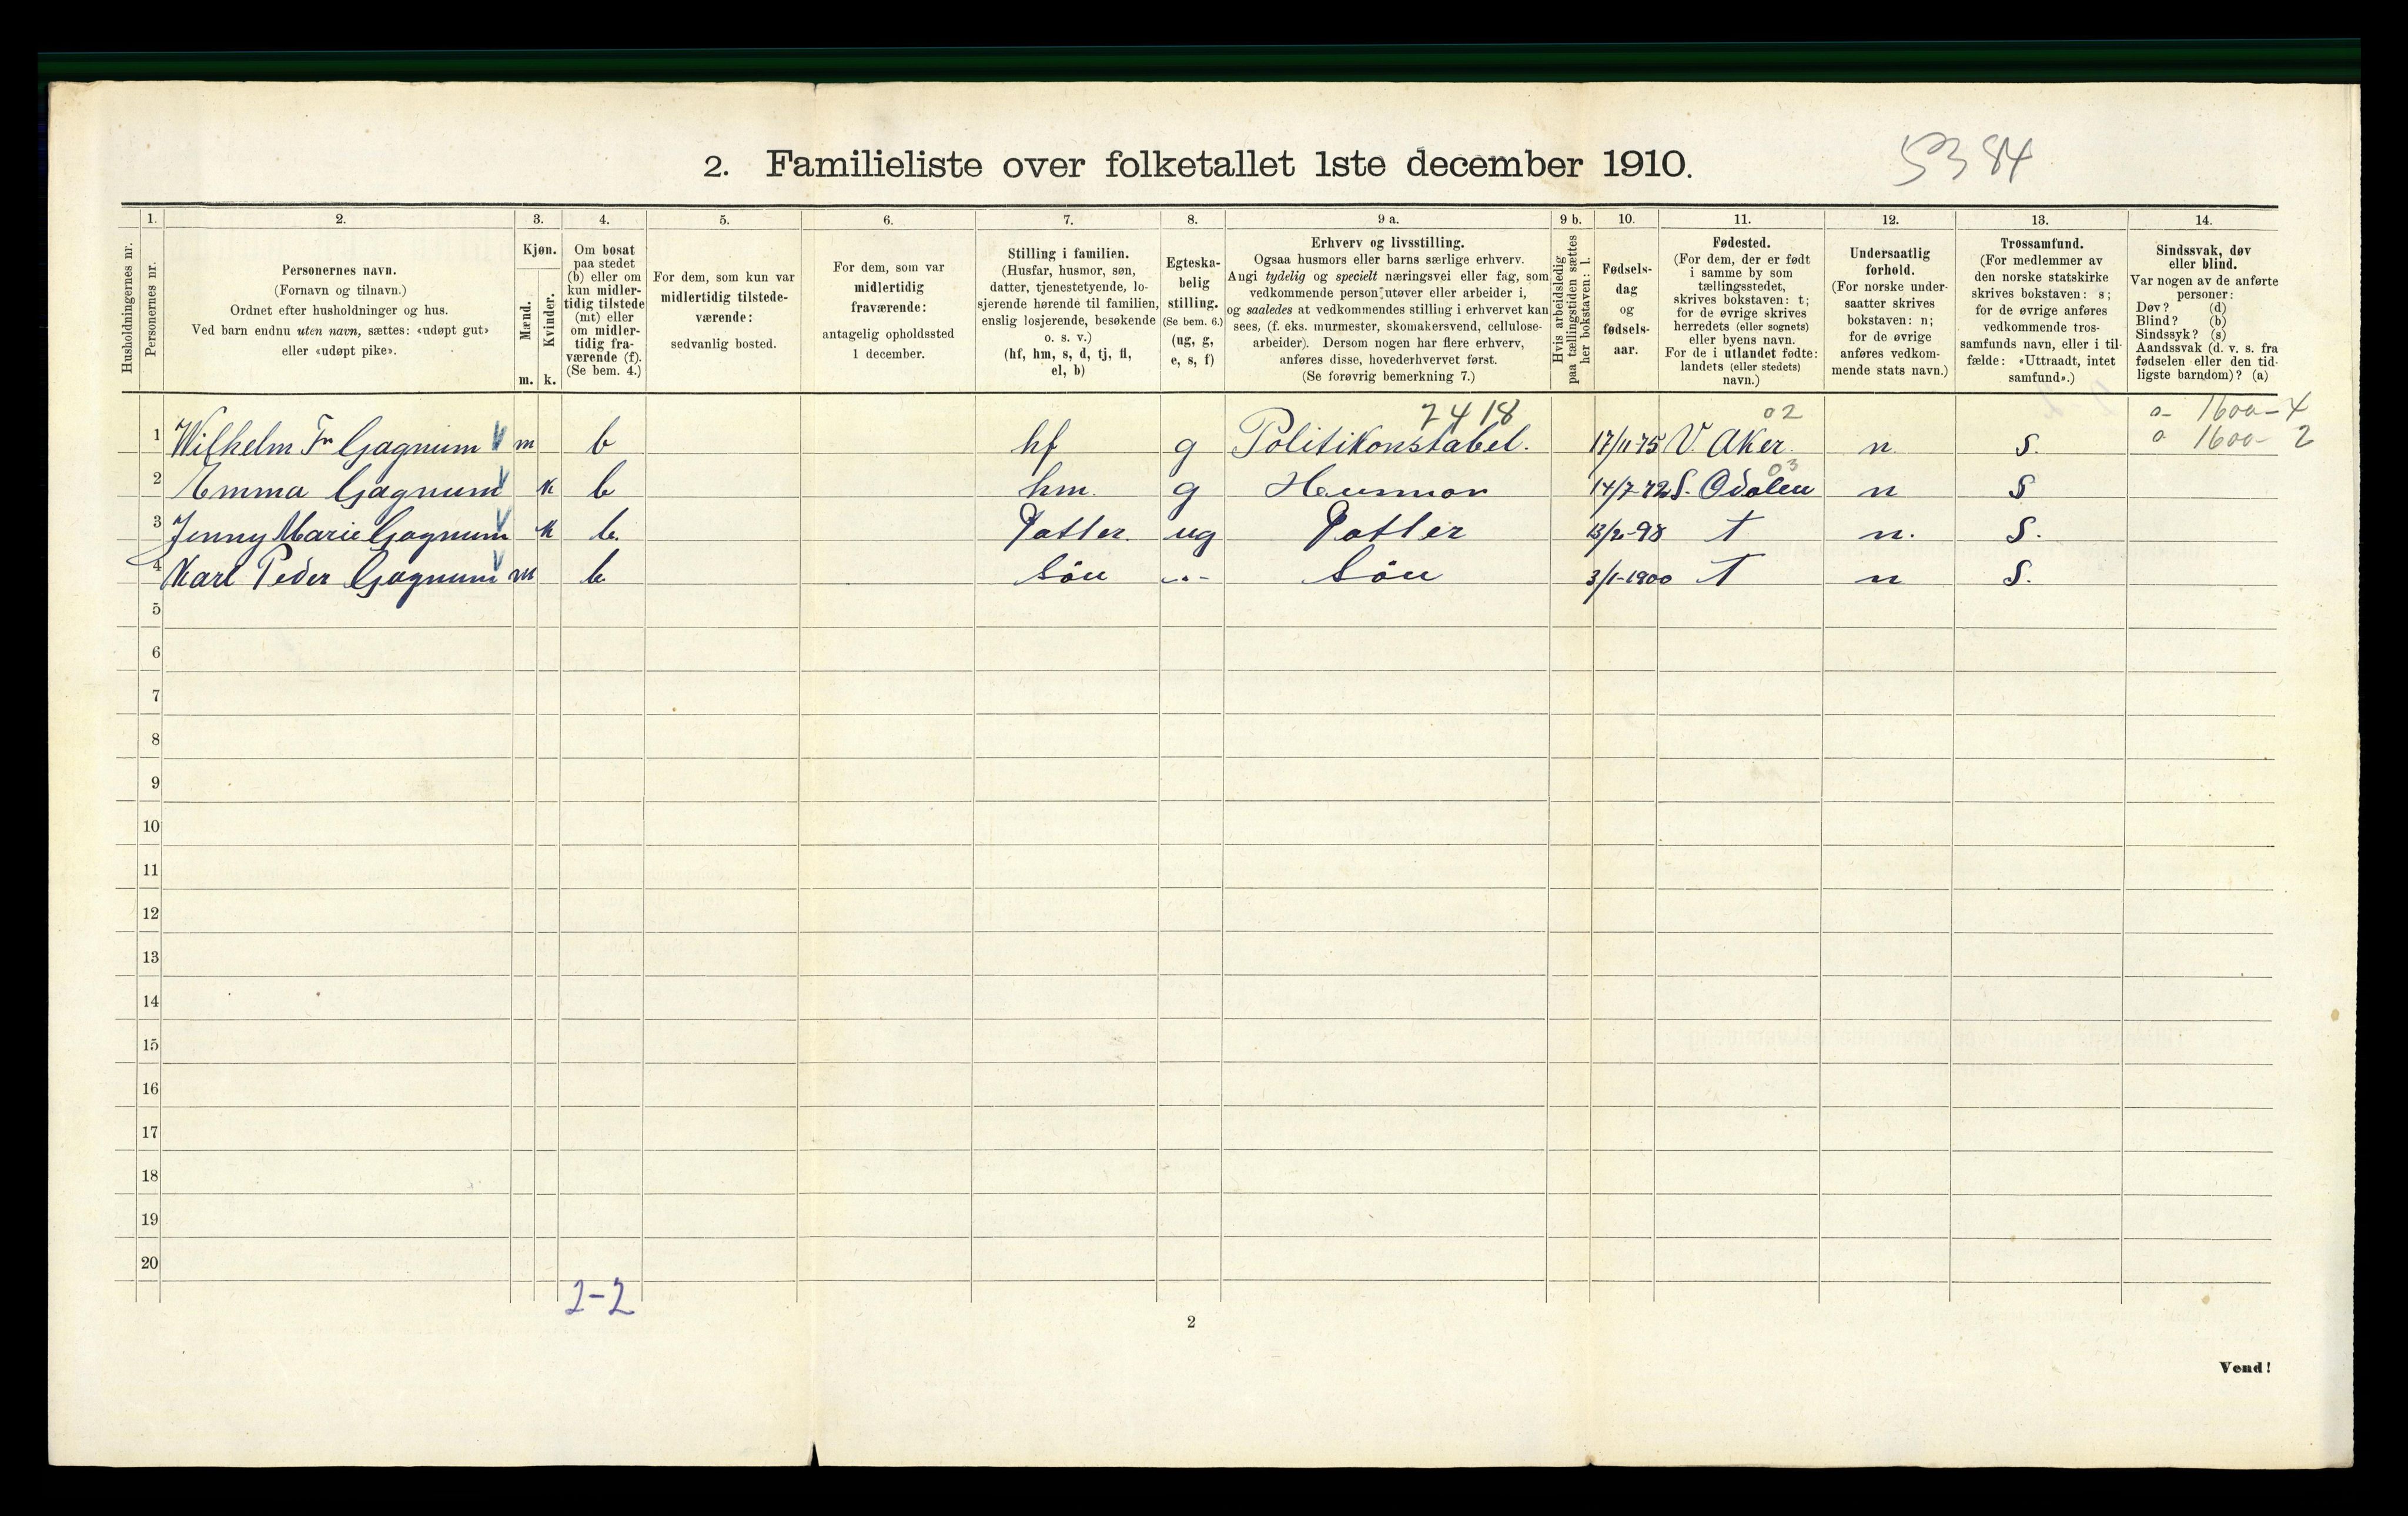 2. Familieliste over folketallet 1ste december 1910.
5384
Husholdningernes nr.
1.
Personernes nr.
2.
Personernes navn.
(Fornavn og tilnavn.)
Ordnet efter husholdninger og hus.
Ved barn endnu uten navn, sættes: «udøpt gut»
eller «udøpt pike».
3.
Kjøn.
Mænd.
Kvinder.
m. k.
4.
Om bosat
paa stedet
(b) eller om
kun midler-
tidig tilstede
(mt) eller
om midler-
tidig fra-
værende (f).
(Se bem. 4.)
5.
For dem, som kun var
midlertidig tilstede-
værende:
sedvanlig bosted.
6.
For dem, som var
midlertidig
fraværende:
antagelig opholdssted
1 december.
7.
Stilling i familien.
(Husfar, husmor, søn,
datter, tjenestetyende, lo-
sjerende hørende til familien,
enslig losjerende, besøkende
o. s. v.)
(hf, hm, s, d, tj, fl,
el, b)
8.
Egteska-
belig
stilling.
(Se bem. 6.)
(ug, g,
e, s, f)
9 a.
Erhverv og livsstilling.
Ogsaa husmors eller barns særlige erhverv.
Angi tydelig og specielt næringsvei eller fag, som
vedkommende person utøver eller arbeider i,
og saaledes at vedkommendes stilling i erhvervet kan
sees, (f. eks. murmester, skomakersvend, cellulose-
arbeider). Dersom nogen har flere erhverv,
anføres disse, hovederhvervet først.
(Se forøvrig bemerkning 7.)
9 b.
Hvis arbeidsledig
paa tællingstiden sættes
her bokstaven: l.
10.
Fødsels-
dag
og
fødsels-
aar.
11.
Fødested.
(For dem, der er født
i samme by som
tællingsstedet,
skrives bokstaven: t;
for de øvrige skrives
herredets (eller sognets)
eller byens navn.
For de i utlandet fødte:
landets (eller stedets)
navn.)
12.
Undersaatlig
forhold.
(For norske under-
saatter skrives
bokstaven: n;
for de øvrige
anføres vedkom-
mende stats navn.)
13.
Trossamfund.
(For medlemmer av
den norske statskirke
skrives bokstaven: s;
for de øvrige anføres
vedkommende tros-
samfunds navn, eller i til-
fælde: «Uttraadt, intet
samfund».)
14.
Sindssvak, døv
eller blind.
Var nogen av de anførte
personer:
Døv? (d)
Blind? (b)
Sindssyk? (s)
Aandssvak (d. v. s. fra
fødselen eller den tid-
ligste barndom)? (a)
7418 02 o- 1600-4
1 Wilhelm Fr Gagnum m b hf g Politikonstabel. 17/11-75 V. Aker. n. S. o 1600- 2
03
2 Emma Gagnum k b hm. g Husmor 14/7-72 S. Odalen n S
3 Jenny Marie Gagnum k b. Datter. ug Datter 13/2-98 t n. S.
4 Karl Peder Gagnum m b Sön -"- Sön 3/1-1900 t n S.
5
6
7
8
9
10
11
12
13
14
15
16
17
18
19
20
2-2
2
Vend!